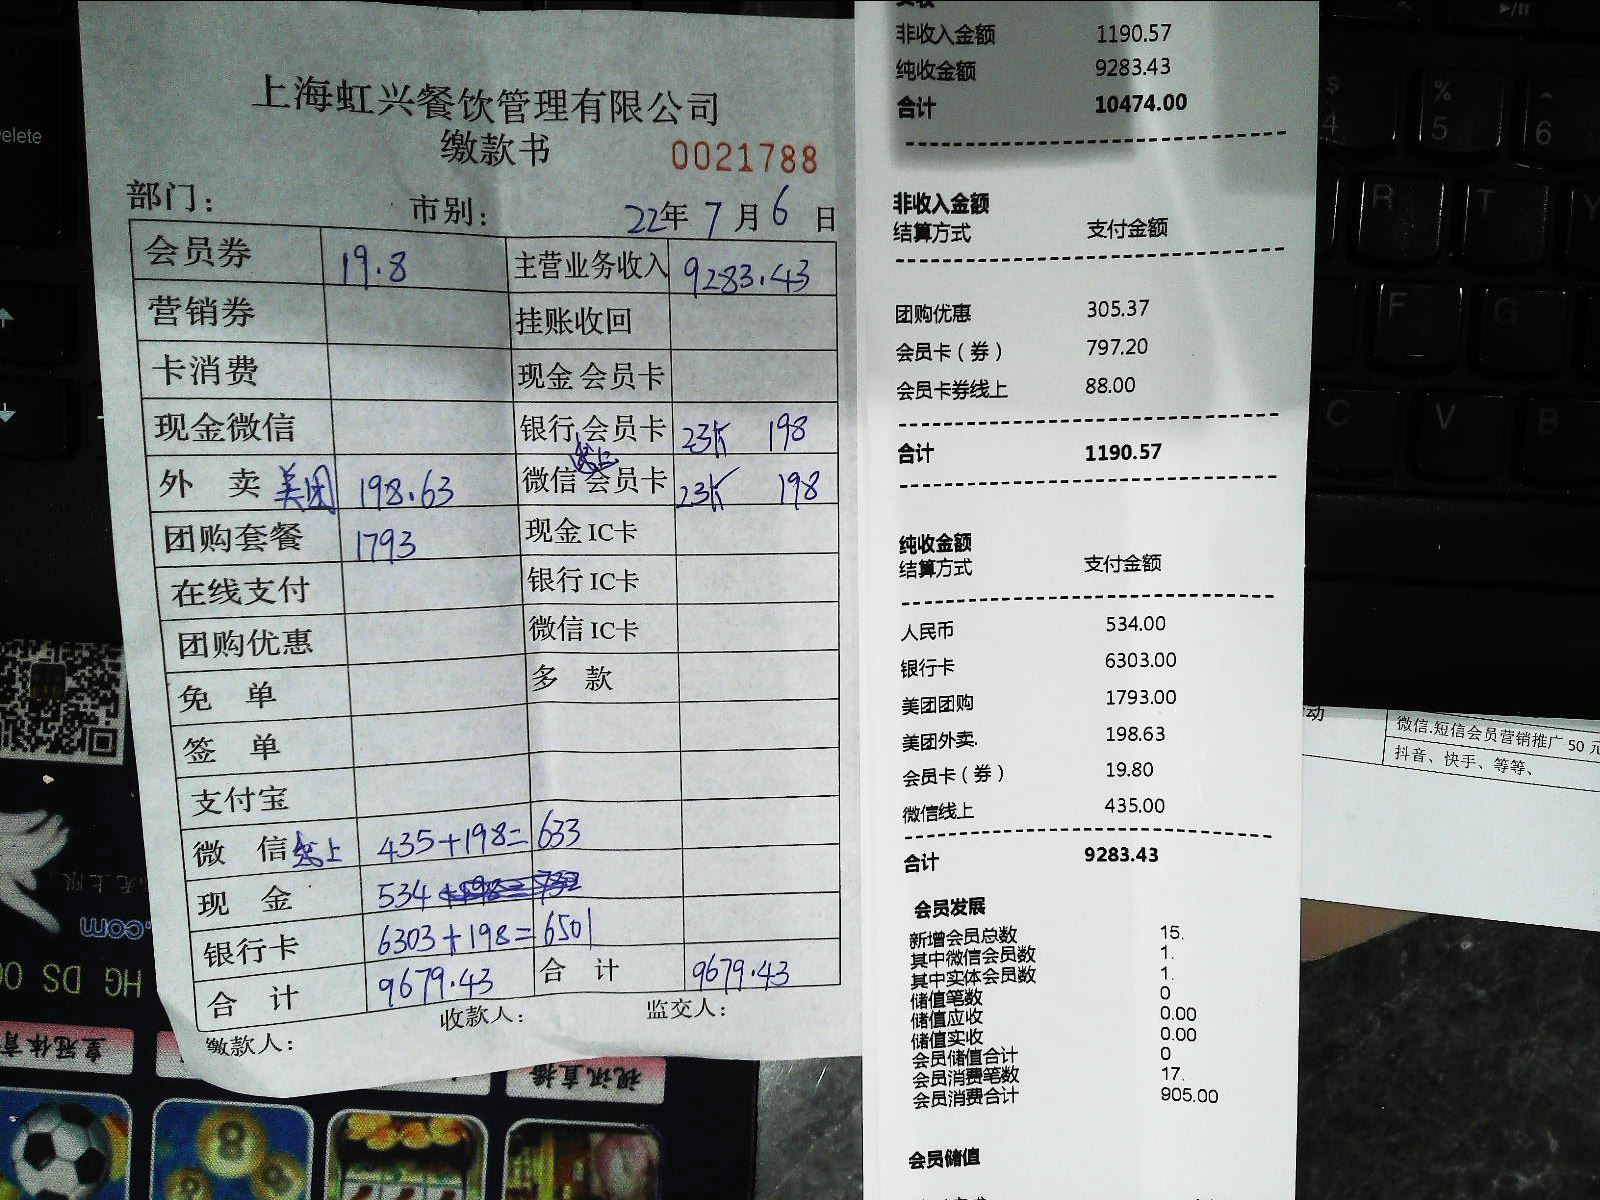 上海虹兴餐饮管理有限公司
缴款书
0021788
部门： 市别： 22年 7月 6日
会员券 19.8 主营业务收入 9283.43
营销券 挂账收回
卡消费 现金 会员卡
现金微信 银行会员卡 23张 198
外 卖 美团 198.63 微信 线上 会员卡 23张 198
团购套餐 1793 现金 IC卡
在线支付 银行 IC卡
团购优惠 微信 IC卡
免 单 多 款
签 单
支付宝
微 信 线上 435+198=633
现 金 534 +198=732
银行卡 6303+198=6501
合 计 9679.43 合 计 9679.43
缴款人： 收款人： 监交人：
非收入金额 1190.57
纯收金额 9283.43
合计 10474.00
非收入金额
结算方式 支付金额
团购优惠 305.37
会员卡（券） 797.20
会员卡券线上 88.00
合计 1190.57
纯收金额
结算方式 支付金额
人民币 534.00
银行卡 6303.00
美团团购 1793.00
美团外卖. 198.63
会员卡（券） 19.80
微信线上 435.00
合计 9283.43
会员发展
新增会员总数 15.
其中微信会员数 1.
其中实体会员数 1.
储值笔数 0
储值应收 0.00
储值实收 0.00
会员储值合计 0
会员消费笔数 17.
会员消费合计 905.00
会员储值
动
微信.短信会员营销推广 50 元
抖音、快手、等等、
elete
$
4
%
5
^
6
R
T
Y
F
G
C
V
B
.com
HG DS
皇冠体育
视讯直播
8